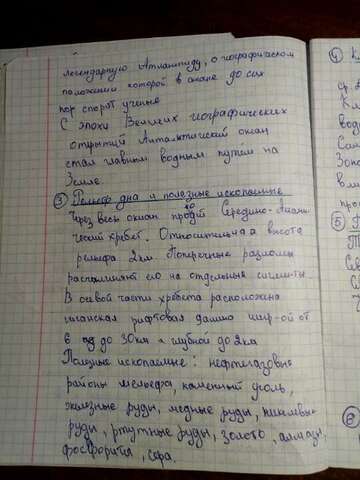 легендарную Атлантиду, о географическом
положении которой в океане до сих
пор спорят ученые
С эпохи Великих географических
открытий Атлантический океан
стал главным водным путем на
Земле.
③ Рельеф дна и полезные ископаемые
Через весь океан Середино-Атлан-
тический хребет. Относительная высота
рельефа 2км. Поперечные разломы
распологают его на отдельные сигменты
В осевой части хребета расположена
гиганская рифтовая долина шир-ой от
6 до 30км и глубиной до 2км
Полезные ископаемые: нефтегазовые
районы шельфа, каменный уголь,
железные руды, медные руды, никелевые
руды, ртутные руды, золото, алмазы,
фосфориты, сера.
④
⑤
⑥